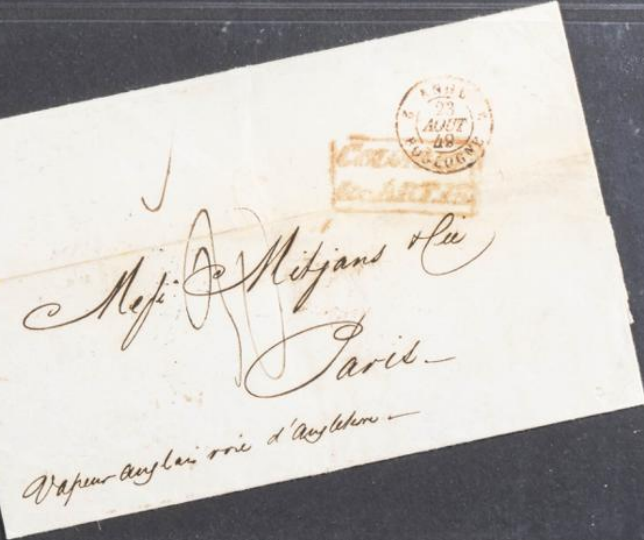 2 ANGL. 2
23
AOUT
49
BOULOGNE
COLONIES
&c. ART. 13.
Messrs. Mitjans & Cie
Paris
Vapeur anglais voie d'Angleterre